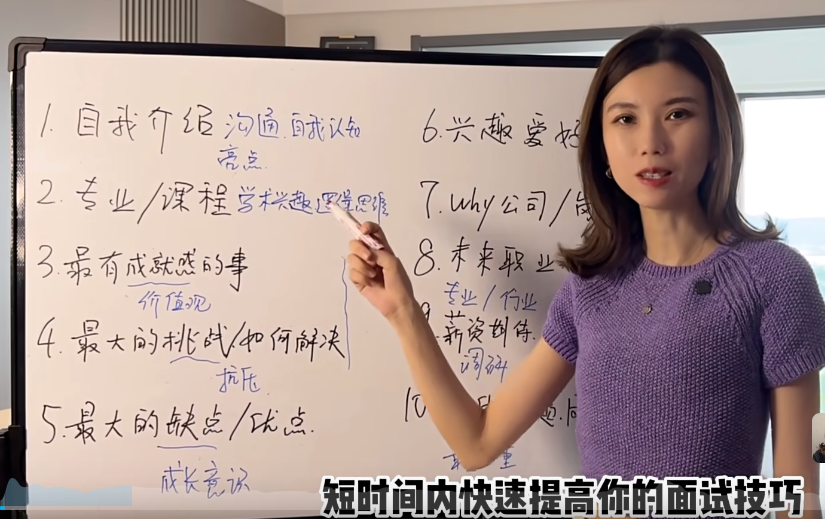 1. 自我介绍 沟通.自我认知
亮点.
2. 专业/课程 学术兴趣 逻辑思维
3. 最有成就感的事
价值观
4. 最大的挑战/如何解决
抗压
5. 最大的缺点/优点.
成长意识
6. 兴趣爱好
7. Why公司/
8. 未来职业
专业/行业
9. 薪资期待.
调研
10
重
短时间内快速提高你的面试技巧